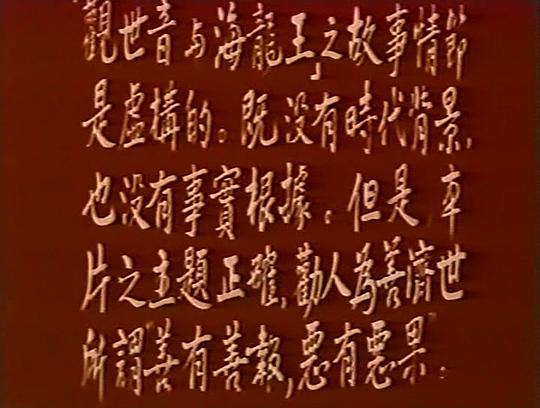 「觀世音与海龍王」之故事情節
是虛構的。既没有時代背景,
也没有事實根據。但是本
片之主題正確,勸人為善濟世
所謂"善有善報,惡有惡果"。